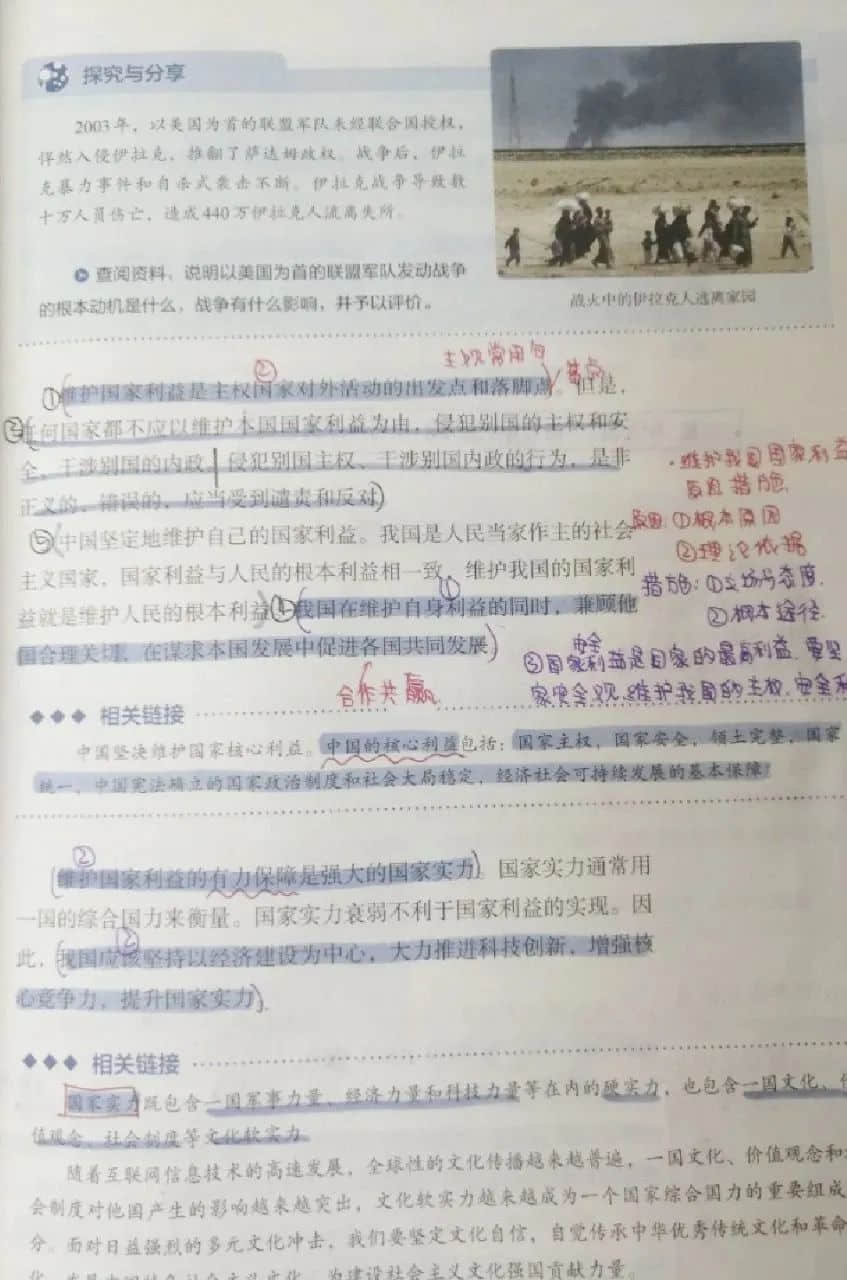 探究与分享
2003年，以美国为首的联盟军队未经联合国授权，
悍然入侵伊拉克，推翻了萨达姆政权。战争后，伊拉
克暴力事件和自杀式袭击不断。伊拉克战争导致数
十万人员伤亡，造成440万伊拉克人流离失所。
查阅资料，说明以美国为首的联盟军队发动战争
的根本动机是什么，战争有什么影响，并予以评价。
战火中的伊拉克人逃离家园
主观常用句
①维护国家利益是主权国家对外活动的出发点和落脚点。但是，
②
任何国家都不应以维护本国国家利益为由，侵犯别国的主权和安
全，干涉别国的内政。侵犯别国主权、干涉别国内政的行为，是非
正义的、错误的，应当受到谴责和反对。
中国坚定地维护自己的国家利益。我国是人民当家作主的社会
主义国家，国家利益与人民的根本利益相一致，维护我国的国家利
益就是维护人民的根本利益。我国在维护自身利益的同时，兼顾他
①
国合理关切，在谋求本国发展中促进各国共同发展。
合作共赢
·维护我国国家利益
原因 措施
原因：①根本原因
②理论依据
措施：①立场与态度
②根本途径
③国家安全利益是国家的最高利益，要坚
家安全观，维护我国的主权、安全
相关链接
中国坚决维护国家核心利益。中国的核心利益包括：国家主权，国家安全，领土完整，国家
统一，中国宪法确立的国家政治制度和社会大局稳定，经济社会可持续发展的基本保障。
②
维护国家利益的有力保障是强大的国家实力。国家实力通常用
一国的综合国力来衡量。国家实力衰弱不利于国家利益的实现。因
此，我国应该坚持以经济建设为中心，大力推进科技创新，增强核
心竞争力，提升国家实力。
相关链接
国家实力既包含一国军事力量、经济力量和科技力量等在内的硬实力，也包含一国文化、价
值观念、社会制度等文化软实力。
随着互联网信息技术的高速发展，全球性的文化传播越来越普遍，一国文化、价值观念和
会制度对他国产生的影响越来越突出，文化软实力越来越成为一个国家综合国力的重要组成
分。面对日益强烈的多元文化冲击，我们要坚定文化自信，自觉传承中华优秀传统文化和革命
为建设社会主义文化强国贡献力量。